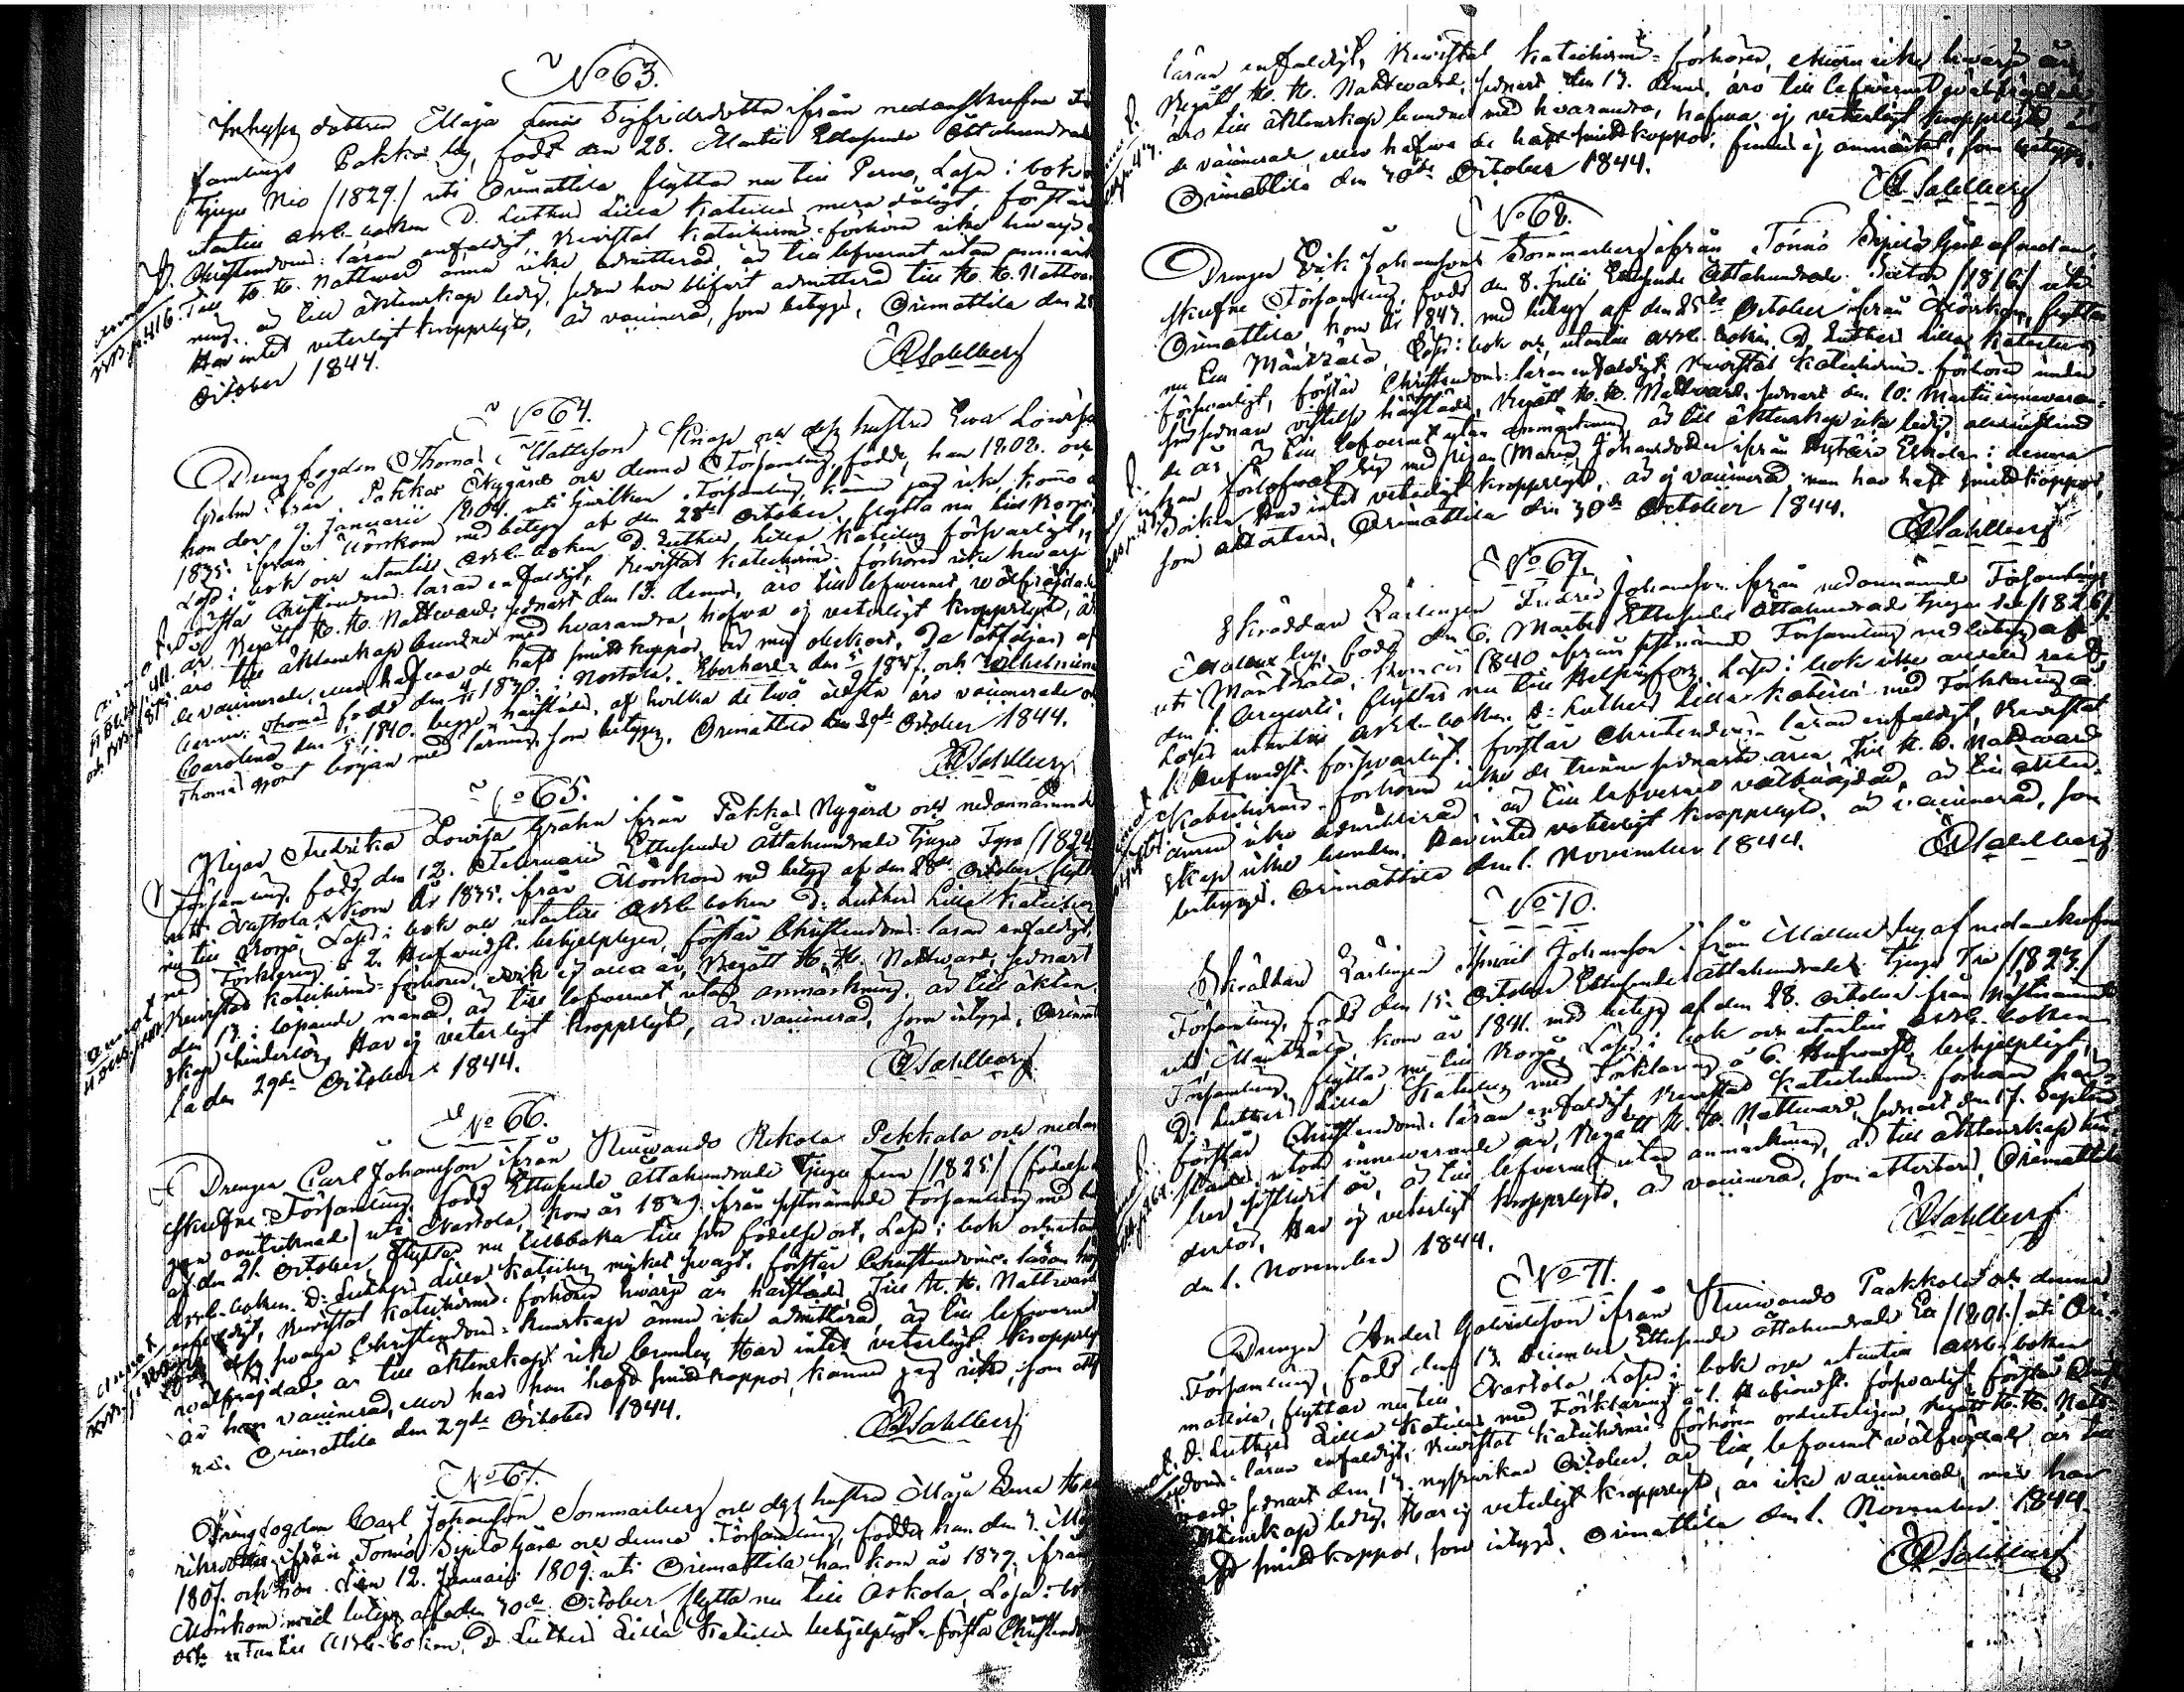 No 63.
Inhyses dottren Maja Lena Sigfridsdotter ifrån nedanskrefne För
samlings Pakka by, född den 28. Martii Ettusende Åttahundrade
Tjugu Nio /1829./ uti Orimattila flyttar nu till Perno, Läser i bok o
utantill ABC-boken D. Luthers Lilla Kateches mera dåligt, förstår
Christendoms-läran enfaldigt, Bevistat Katechismi-förhören icke hwarje
Till H. H. Nattward ännu icke admitterad, är till lefvernet utan anmärk
ning, är till äktenskap ledig, sedan hon blifvit admitterad till H. H. Nattwar
Har intet veterligt kroppslyte, är vaccinerad, som betygas, Orimattila den 28
October 1844.
Sahlberg
No 64.
Drengfogden Thomas Mattsson och dess hustru Ewa Lowisa
Grahn ifrån Pakka Nygård och denna Församling, födde, han 1802. och
hon den 9 Januarii 1804. uti hwilken Församling, känner jag icke, komo år
1835. ifrån Mörskom med betyg af den 28de October, flytta nu till Borgå,
Läsa i bok och utantill ABC-boken D. Luthers Lilla Kateches försvarligt,
förstå Christendoms-läran enfaldigt, Bevistat Katechismi-förhören icke hwarje
år. Begått H. H. Nattward, sednast den 13. dennes, äro till lefvernet wälfrägdade
äro till äktenskap bundne med hvarandra, hafwa ej veterligt kroppslyte, är
de vaccinerade, eller hafwa de haft smittkoppor, är mig obekant. Da åtföljas af
barnen: Thomas född den 1830. i Nastola, Eberhard den 1837. och Wilhelmina
Carolina den 1840. begge härstädes, af hvilka de två äldsta äro vaccinerade o
Thomas gjort början med läsning, som betygas, Orimattila den 29de October 1844.
Sahlberg
No 65.
Pigan Fredrika Lowisa Grahn ifrån Pakka Nygård och nedannämnde
Församling, född den 12. Februarii Ettusende Åttahundrade Tjugu Fyra /1824
uti Nastola, kom år 1835. ifrån Mörskom med betyg af den 28de October, flytt
nu till Borgå, Läser i bok och utantill ABC-boken D. Luthers Lilla Kateches
med Förklaring å 2. Hufwudst. behjelpligen, förstår Christendoms-läran enfaldigt,
Bevistat Katechismi-förhören, ej alla år, Begått H. H. Nattward, sednast
den 13. i löpande månad, är till lefvernet utan anmärkning, är till äkten-
skap hinderlös, Har ej veterligt kroppslyte, är vaccinerad, som intygas, Orimatti
la den 29de October 1844.
Sahlberg
No 66.
Drengen Carl Johansson ifrån Niinikoski Rekola Pekkala och nedan
skrefne Församling, född Ettusende Åttahundrade Tjugu Fem /1825/ (födelse
uti Nastola, kom år 1839. ifrån sistnämnde Församling med be
af den 21. October, flyttar nu tillbaka till sin födelse ort, Läser i bok och utan
ABC-boken D. Luthers Lilla Kateches mycket svagt, förstår Christendoms-läran
enfaldigt, Bevistat Katechismi-förhören hwarje år härstädes. Till H. H. Nattward
för dess svaga Christendoms-kunskap ännu icke admitterad, är till lefvernet
wälfrägdad, är till äktenskap icke bunden, Har intet veterligt kroppslyte
är han vaccinerad, eller har han haft smittkoppor, känner jag icke, som att
Orimattila den 29de October 1844.
Sahlberg
No 67.
Drengfogden Carl Johansson Sommarberg och dess hustru Maja Lena
ifrån Tönnö Sipilä Gård och denna Församling, födde, han den
1807. och hon den 12. Januarii 1809. uti Orimattila, han kom år 1839. ifrån
Mörskom med betyg af den 30de October flytta nu till Askola, Läsa i bok
och utantill ABC-boken, D. Luthers Lilla Kateches behjelpligt, förstå Christendoms
läran enfaldigt, Bevistat Katechismi-förhören, ehuru icke hwarje år,
Begått H. H. Nattward, sednast den 13. dennes, äro till lefvernet wälfrägdade,
äro till äktenskap bundne med hvarandra, hafwa ej veterligt kroppslyte, äro
de vaccinerade, eller hafwa de haft smittkoppor, finnes ej anmärkt, som betygas,
Orimattila den 30de October 1844.
Sahlberg
No 68.
Drengen Erik Johansson Sommarberg ifrån Tönnö Sipilä Gård af nedan-
skrefne Församling, född den 8. Julii Ettusende Åttahundrade Sexton /1816/ uti
Orimattila, kom år 1843. med betyg af den 25de October ifrån Mörskom, flyttar
nu till Mäntsälä, Läser i bok och utantill ABC-boken, D. Luthers Lilla Kateches
försvarligt, förstår Christendoms-läran enfaldigt, Bevistat Katechismi-förhören under
sin sednare vistelse härstädes, Begått H. H. Nattward, sednast den 10. Martii innevaran-
de år, är till lefvernet utan anmärkning, är till äktenskap icke ledig, alldenstund
han förlofwat sig med pigan Maria Johansdotter ifrån Eskola i denna
Socken, Har intet veterligt kroppslyte, är ej vaccinerad, men har haft smittkoppor,
som attesteras, Orimattila den 30de October 1844.
Sahlberg
No 69.
Skräddare Lärlingen Fredric Johansson ifrån nedannämnde Församlings
by, född den 6. Martii Ettusende Åttahundrade Tjugu Sex /1826/
uti Mäntsälä, kom år 1840 ifrån sistnämnde Församling med betyg af
den 1. Augusti, flyttar nu till Helsingfors, Läser i bok icke alldeles rent,
Läser utantill ABC-boken D. Luthers Lilla Kateches med Förklaring å
1. Hufwudst. försvarligt, förstår Christendoms-läran enfaldigt, Bevistat
Katechismi-förhören icke de trenne sednaste åren, Till H. H. Nattward
ännu icke admitterad, är till lefvernet wälfrägdad, är till äkten-
skap icke bunden, Har intet veterligt kroppslyte, är vaccinerad, som
betygas, Orimattila den 1. November 1844.
Sahlberg
No 70.
Skräddare Lärlingen Ismael Johansson ifrån by af nedanskrefne
Församling, född den 15. October Ettusende Åttahundrade Tjugu Tre /1823./
uti Mäntsälä, kom år 1841. med betyg af den 28. October ifrån nästnämnde
Församling, flyttar nu till Borgå, Läser i bok och utantill ABC-boken
D. Luthers Lilla Kateches med Förklaring å 6. Hufwudst. behjelpligt,
förstår Christendoms-läran enfaldigt, Bevistat Katechismi-förhören här-
städes, utom innewarande år, Begått H. H. Nattward, sednast den 17. September
är till lefvernet utan anmärkning, är till äktenskap hin-
derlös, Har ej veterligt kroppslyte, är vaccinerad, som attesteras, Orimattila
den 1. November 1844.
Sahlberg
No 71.
Drengen Anders Gabrielsson ifrån Niinikoski Paakkola och denna
Församling, född den 13. December Ettusende Åttahundrade Ett /1801./ uti Ori-
mattila, flyttar nu till Nastola, Läser i bok och utantill ABC-boken
D. Luthers Lilla Kateches med Förklaring å 1. Hufwudst. försvarligt, förstår Chris
tendoms-läran enfaldigt, Bevistat Katechismi-förhören ordenteligen, Begått H. H. Natt-
ward, sednast den 13. nyssvikne October, är till lefvernet wälfrägdad, är till
äktenskap ledig, Har ej veterligt kroppslyte, är icke vaccinerad, men har
haft smittkoppor, som intygas, Orimattila den 1. November 1844.
Sahlberg